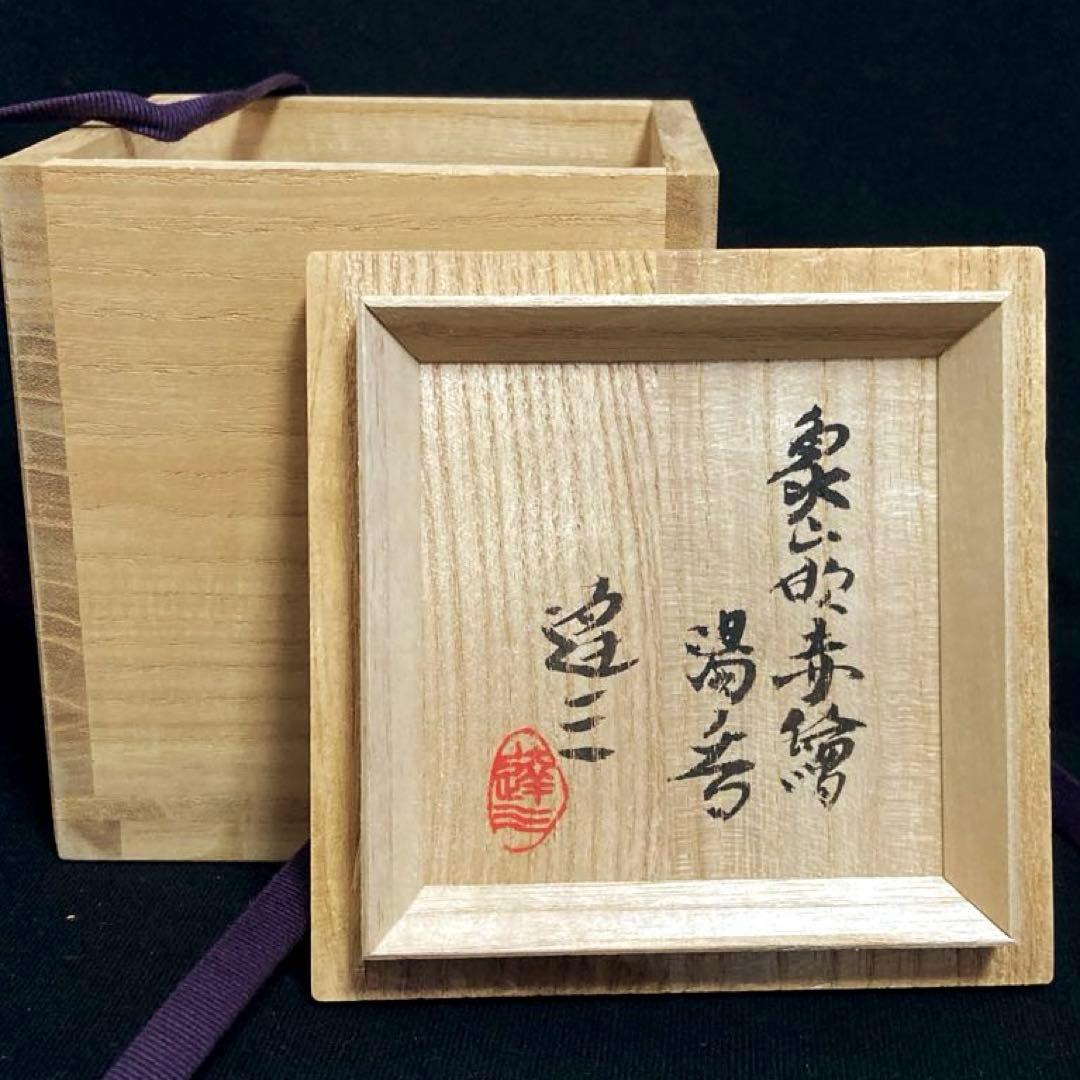 象嵌赤繪
湯呑
達三
達三